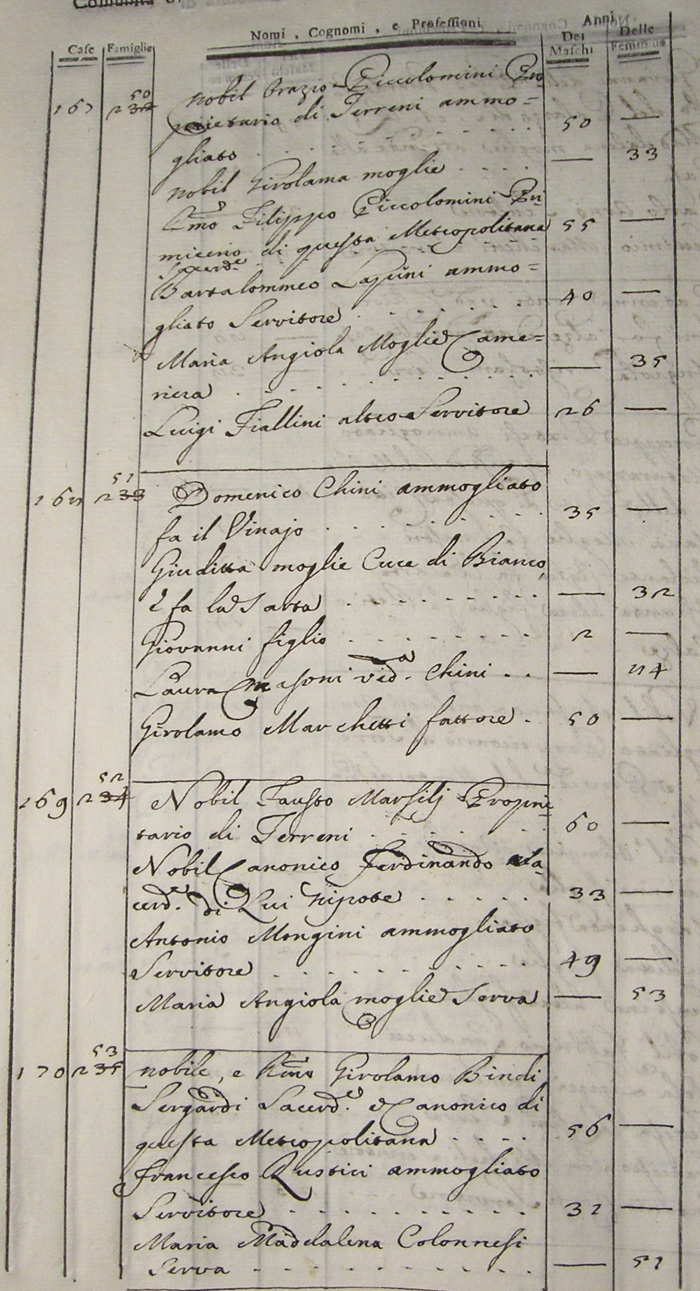 Comunità di
Nomi, Cognomi, e Professioni
Anni
Case Famiglie Dei Maschi Delle Femmine
50
167 232 nobil Orazio Piccolomini Pro
prietario di Terreni ammo=
gliato . . . 50 —
nobil Girolama moglie . . . — 33
Rmo Filippo Piccolomini Pri
micerio di questa Metropolitana 55 —
Sacerde
Bartolommeo Lapini ammo=
gliato Servitore . . . 40 —
Maria Angiola Moglie Came=
riera . . . — 35
Luigi Fiallini altro Servitore 26 —
51
168 233 Domenico Chini ammogliato
fa il Vinajo . . . 35 —
Giuditta moglie Cuce di Bianco,
e fa la Sarta . . . — 32
Giovanni figlio . . . 2 —
Laura Masoni vida. Chini . . —
Girolamo Marchetti fattore . 50 —
52
169 234 Nobil Fausto Marsilj Proprie
tario di Terreni . . . 60 —
Nobil Canonico Ferdinando Sa-
cerde. di Lui Nipote . . . 33 —
Antonio Mongini ammogliato
Servitore . . . 49 —
Maria Angiola moglie Serva — 53
53
170 235 nobile, e Rmo Girolamo Bindi
Sergardi Sacerde. e Canonico di
questa Metropolitana . . . 56 —
Francesco Rustici ammogliato
Servitore . . . 32 —
Maria Maddalena Colonnesi
Serva . . . — 51